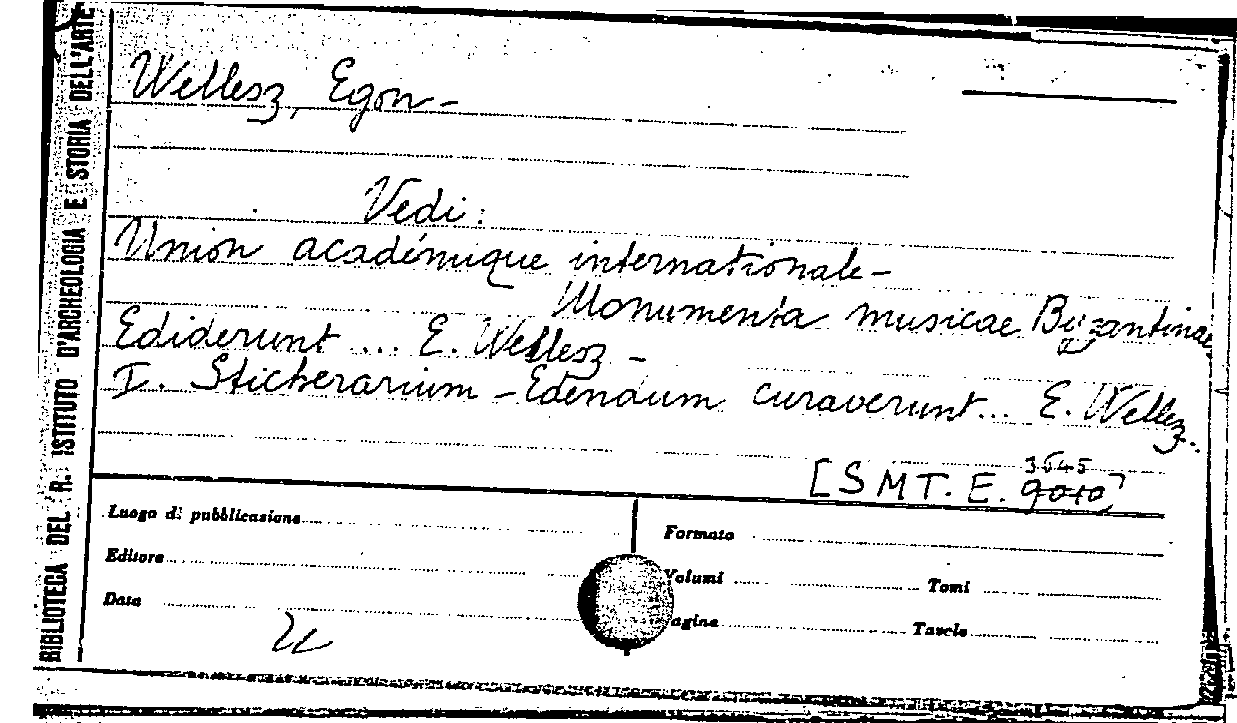 BIBLIOTECA DEL R. ISTITUTO D'ARCHEOLOGIA E STORIA DELL'ARTE
Wellesz, Egon -
Vedi:
Union académique internationale -
Monumenta musicae Byzantinae
Ediderunt ... E. Wellesz -
I. Sticherarium - Edendum curaverunt... E. Wellez.
3545
[SMT. E. 9010]
Luogo di pubblicazione
Formato
Editore
Volumi
Tomi
Data
agine
Tavole